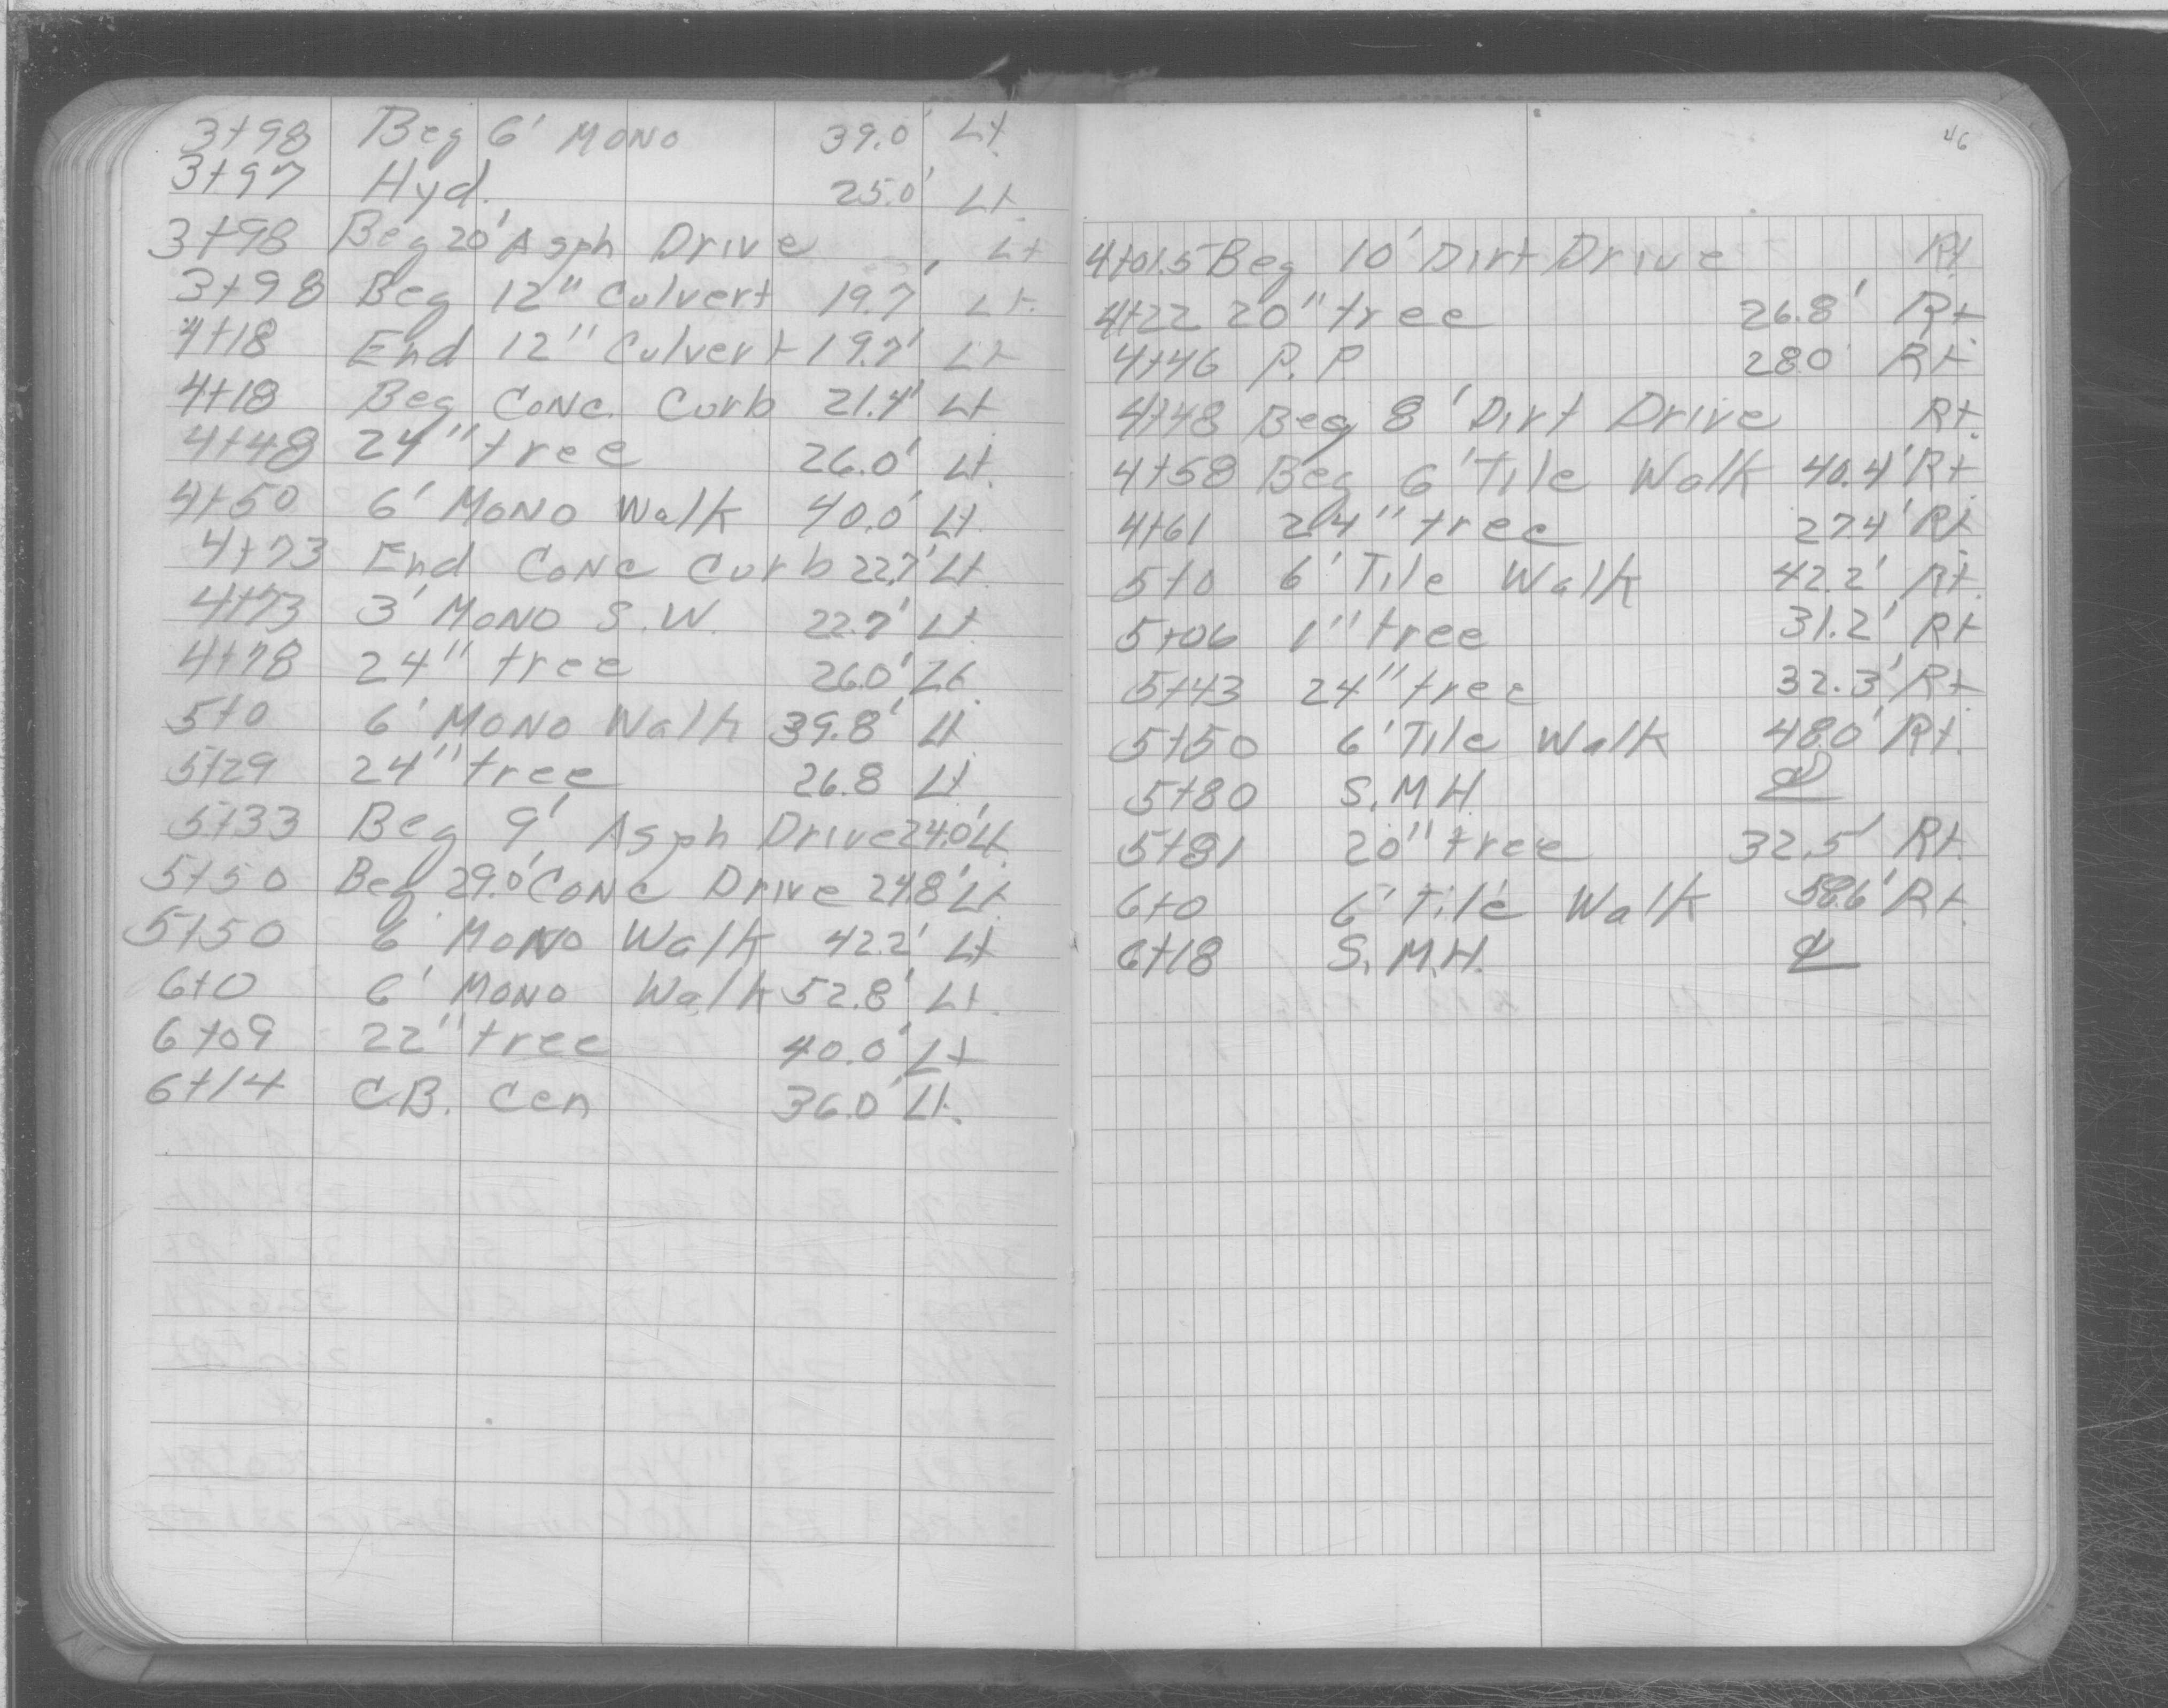 3+98 Beg 6' MONO 39.0' Lt.
3+97 Hyd. 25.0' Lt.
3+98 Beg 20' Asph Drive Lt
3+98 Beg 12" Culvert 19.7' Lt.
4+18 End 12" Culvert 19.7' Lt
4+18 Beg CONC. Curb 21.4' Lt
4+48 24" tree 26.0' Lt.
4+50 6' MONO Walk 40.0' Lt.
4+73 End CONC Curb 22.7' Lt.
4+73 3' MONO S.W. 22.7' Lt.
4+78 24" tree 26.0' Lt.
5+0 6' MONO Walk 39.8' Lt
5+29 24" tree 26.8 Lt
5+33 Beg 9' Asph Drive 24.0' Lt.
5+50 Beg 29.0' CONC Drive 24.8' Lt.
5+50 6' MONO Walk 42.2' Lt
6+0 6' MONO Walk 52.8' Lt.
6+09 22" tree 40.0' Lt
6+14 C.B. Cen 36.0' Lt.
46
4+01.5 Beg 10' Dirt Drive Rt.
4+22 20" tree 26.8' Rt
4+46 P.P. 28.0' Rt
4+48 Beg 8' Dirt Drive Rt.
4+58 Beg 6' Tile Walk 40.4' Rt.
4+61 24" tree 27.4' Rt
5+0 6' Tile Walk 42.2' Rt.
5+06 1" tree 31.2' Rt
5+43 24" tree 32.3' Rt
5+50 6' Tile Walk 48.0' Rt.
5+80 S.M.H. ℄
5+81 20" tree 32.5' Rt.
6+0 6' Tile Walk Rt.
6+18 S.M.H. ℄